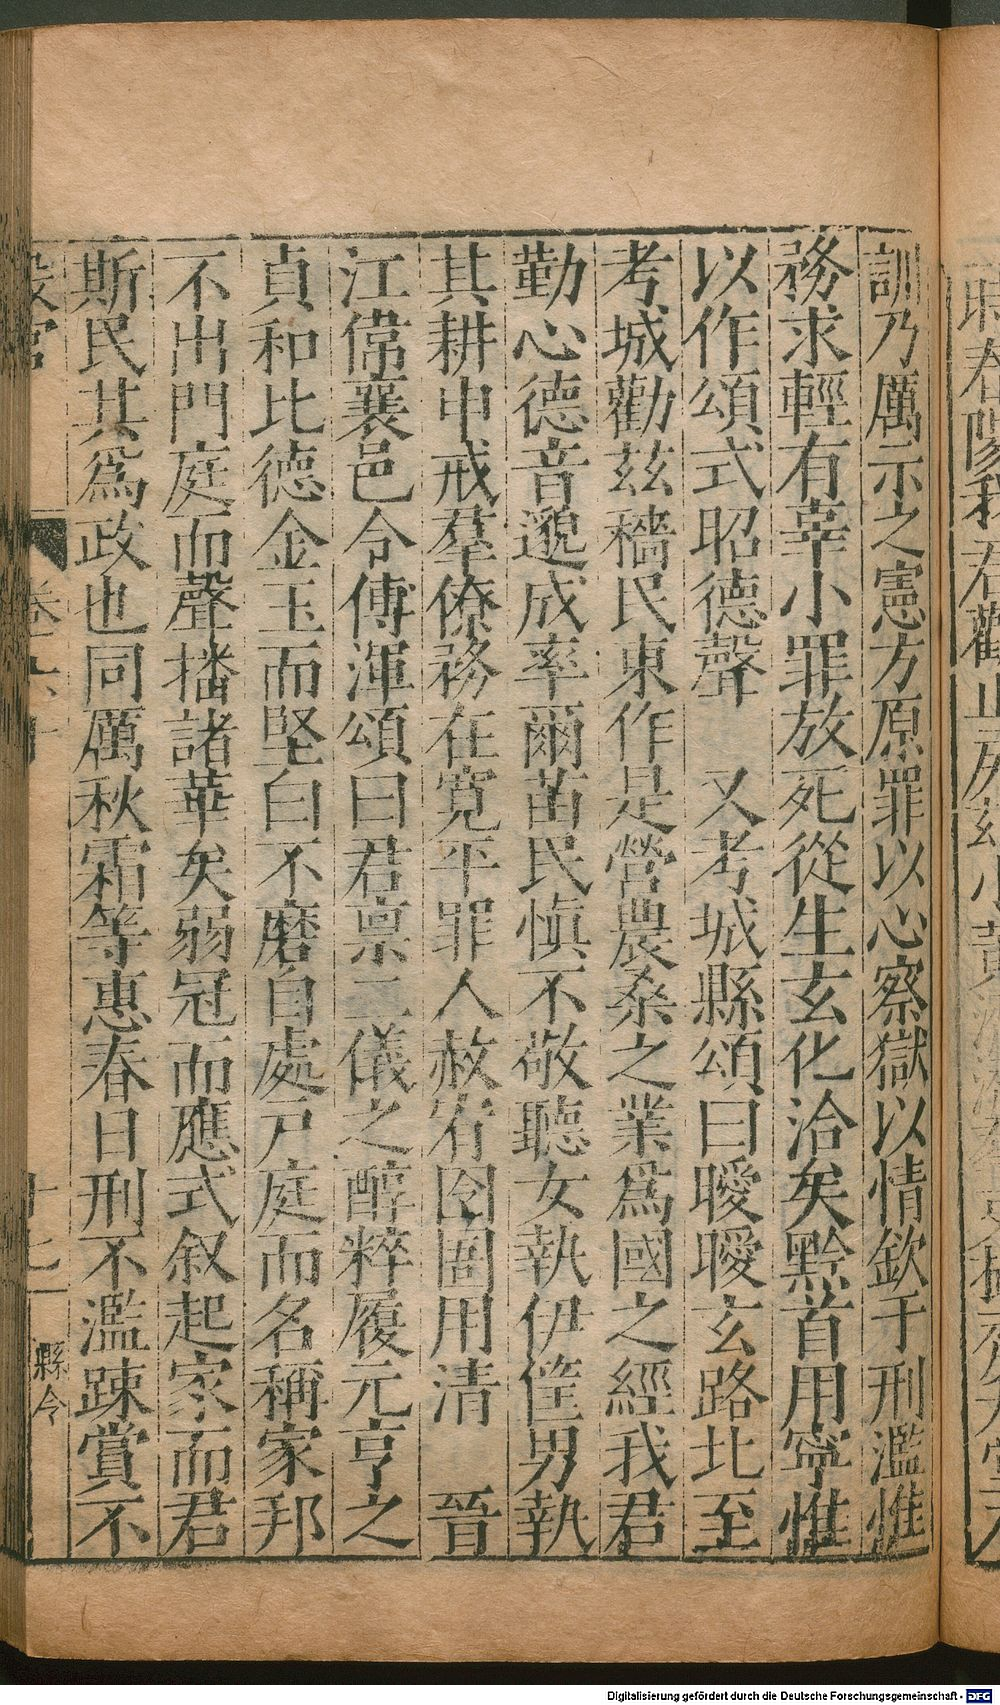 訓乃厲示之憲方原罪以心察獄以情欽于刑濫惟
務求輕有辜小罪放死從生玄化洽矣黔首用寧惟
以作頌式昭德聲　又考城縣頌曰曖曖玄路北至
考城勸茲穡民東作是營農桑之業爲國之經我君
勤心德音邈成率爾苗民愼不敬聽女執伊筐男執
其耕申戒羣僚務在寬平罪人赦宥囹圄用清　晉
江偉襄邑令傅渾頌曰君禀二儀之醇粹履元亨之
貞和比德金玉而堅白不磨自處戸庭而名稱家邦
不出門庭而聲播諸華矣弱冠而應式叙起家而君
斯民其爲政也同厲秋霜等惠春日刑不濫踈賞不
縣令
Digitalisierung gefördert durch die Deutsche Forschungsgemeinschaft - DFG